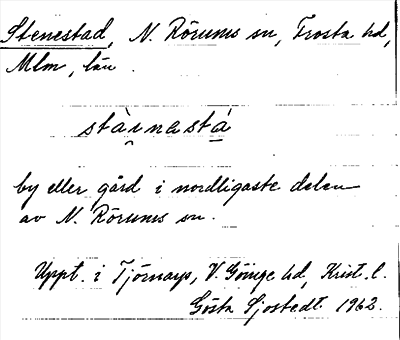 Stenestad, N. Rörums sn, Frosta hd,
Mlm, län.
stàinastá
by eller gård i nordligaste delen
av N. Rörums sn.
Uppt. i Tjörnarp, V. Göinge hd, Krist. l.
Gösta Sjöstedt 1962.